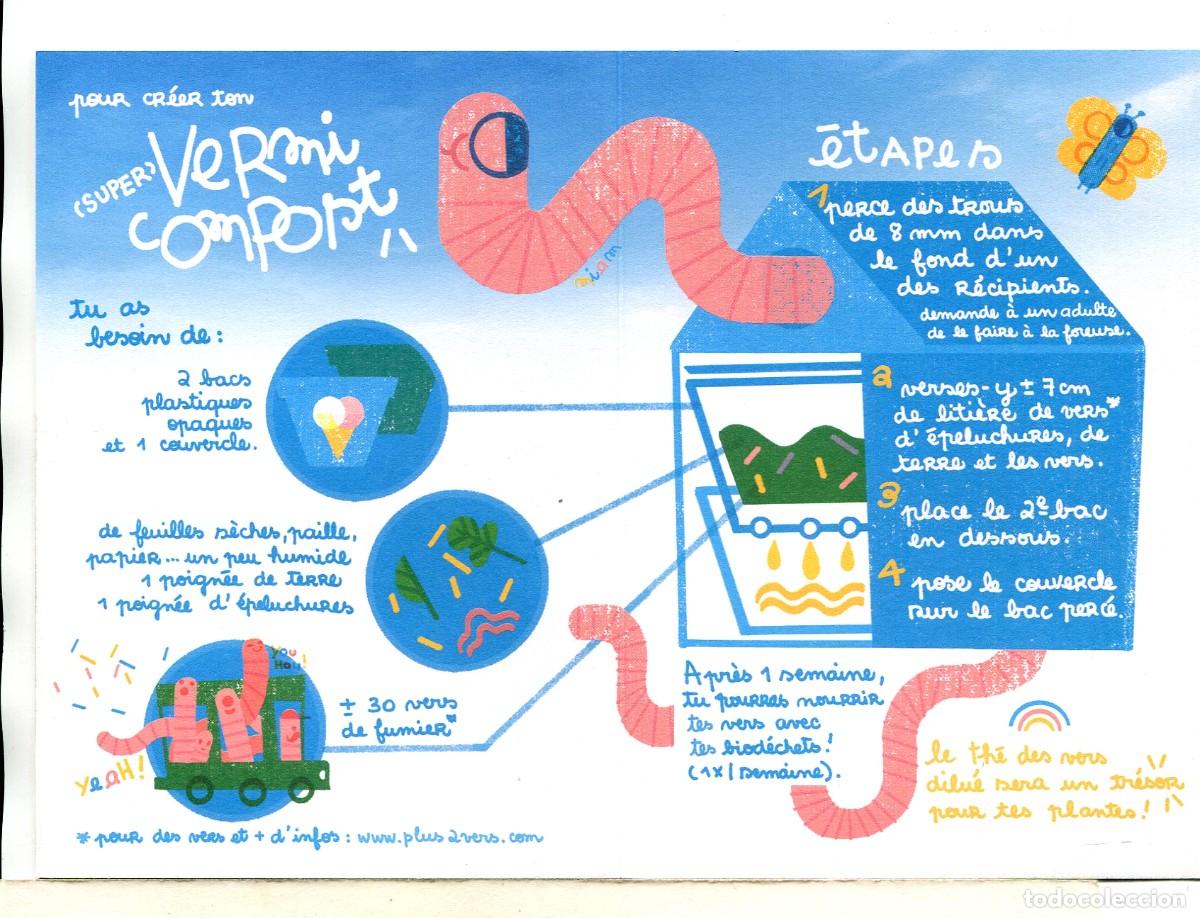 pour créer ton
(SUPER) Vermi
compost
tu as
besoin de :
2 bacs
plastiques
opaques
et 1 couvercle.
de feuilles sèches, paille,
papier... un peu humide
1 poignée de terre
1 poignée d'épeluchures
You
Hou!
YeaH!
± 30 vers
de fumier*
* pour des vers et + d'infos : www.plus2vers.com
miam
étapes
1 perce des trous
de 8 mm dans
le fond d'un
des récipients.
demande à un adulte
de le faire à la foreuse.
2 verses-y ± 7 cm
de litière de vers*
d'épeluchures, de
terre et les vers.
3 place le 2e bac
en dessous.
4 pose le couvercle
sur le bac percé.
Après 1 semaine,
tu pourras nourrir
tes vers avec
tes biodéchets!
(1x/semaine).
le thé des vers
dilué sera un trésor
pour tes plantes!
todocoleccion